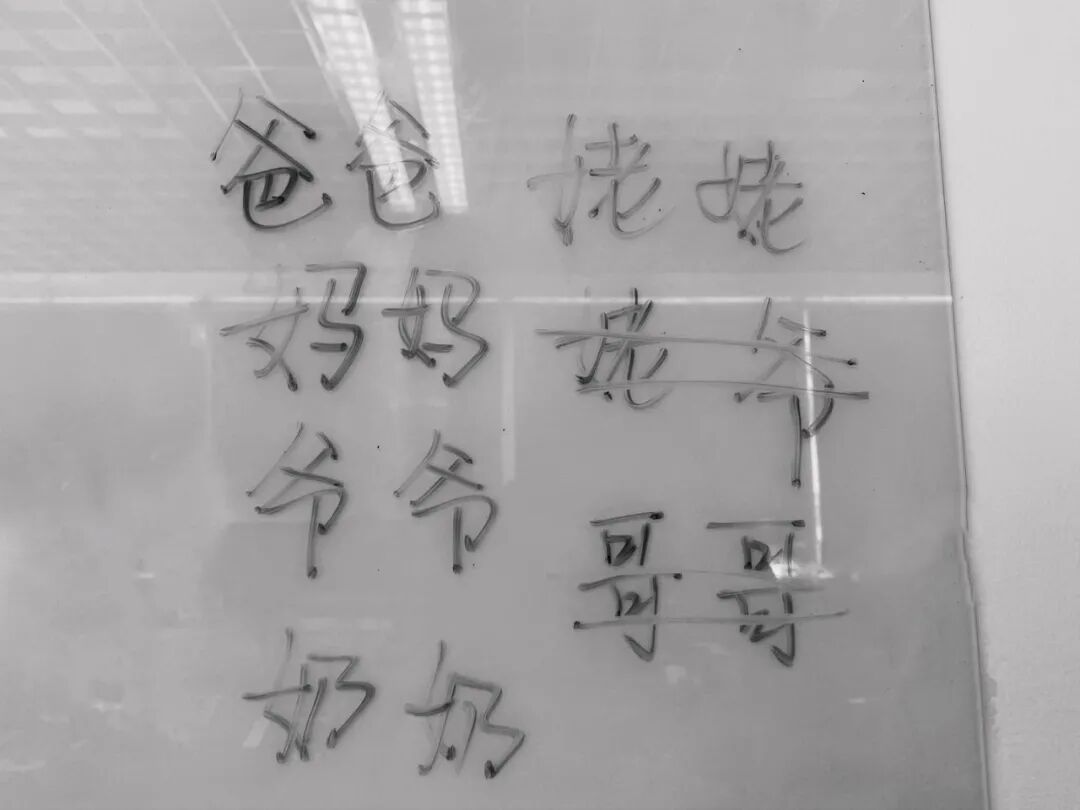 爸爸
妈妈
爷爷
奶奶
姥姥
姥爷
哥哥